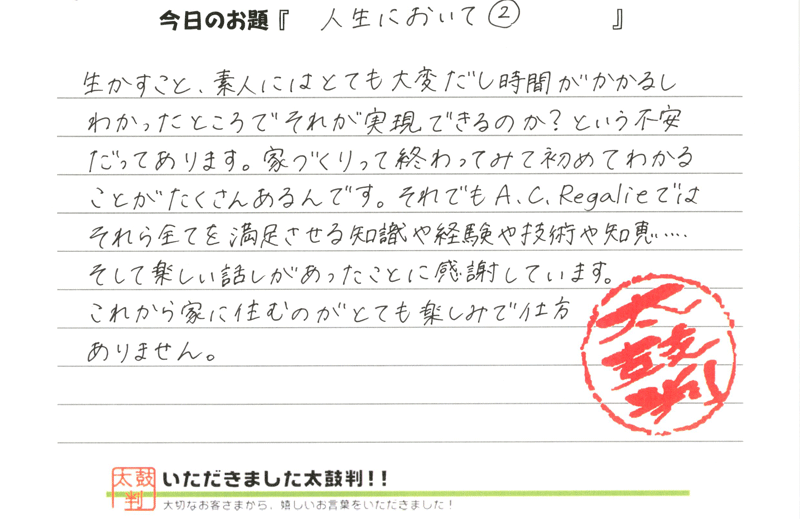 今日のお題『 人生において② 』
生かすこと、素人にはとても大変だし時間がかかるし
わかったところでそれが実現できるのか？という不安
だってあります。家づくりって終わってみて初めてわかる
ことがたくさんあるんです。それでもA.C.Regalieでは
それら全てを満足させる知識や経験や技術や知恵……
そして楽しい話しがあったことに感謝しています。
これから家に住むのがとても楽しみで仕方
ありません。
太鼓判
太鼓判
いただきました太鼓判!!
大切なお客さまから、嬉しいお言葉をいただきました！